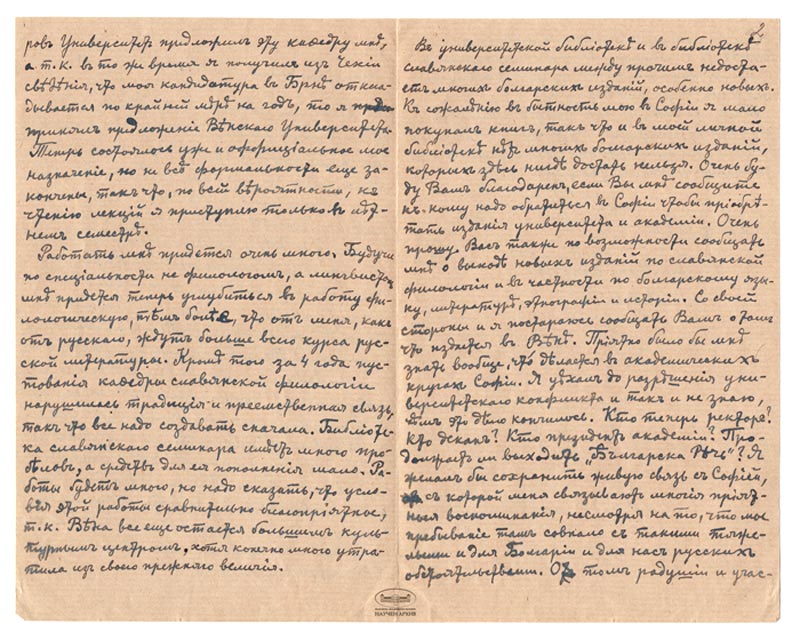 ровъ Университетъ предложилъ эту кафедру мнѣ,
а т.к. въ то же время я получилъ изъ Чехіи
свѣдѣнія, что моя кандидатура въ Брнѣ откла-
дывается по крайней мѣрѣ на годъ, то я
принялъ предложеніе Вѣнскаго Университета.
Теперь состоялось уже и оффиціальное мое
назначеніе, но не всѣ формальности еще за-
кончены, такъ что, по всей вѣроятности, къ
чтенію лекцій я приступлю только въ лѣт-
немъ семестрѣ.
Работать мнѣ придется очень много. Будучи
по спеціальности не филологомъ, а лингвистомъ
мнѣ придется теперь углубиться въ работу фи-
лологическую, тѣмъ болѣе, что отъ меня, какъ
отъ русскаго, ждутъ больше всего курса рус-
ской литературы. Кромѣ того за 4 года пус-
тованія кафедры славянской филологіи
нарушилась традиція и преемственная связь,
такъ что все надо создавать сначала. Библіоте-
ка славянскаго семинара имѣетъ много про-
бѣловъ, а средствъ для ея пополненія мало. Ра-
боты будетъ много, но надо сказать, что усло-
вія этой работы сравнительно благопріятное,
т.к. Вѣна все еще остается большимъ куль-
турнымъ центромъ, хотя конечно много утра-
тила изъ своего прежняго величія.
2
Въ университетской библіотекѣ и въ библіотекѣ
славянскаго семинара между прочимъ недоста-
етъ многихъ болгарскихъ изданій, особенно новыхъ.
Къ сожалѣнію въ бытность мою въ Софіи я мало
покупалъ книгъ, такъ что и въ моей личной
библіотекѣ нѣтъ многихъ болгарскихъ изданій,
которыхъ здѣсь нигдѣ достать нельзя. Очень бу-
ду Вамъ благодаренъ, если Вы мнѣ сообщите
къ кому надо обратиться въ Софіи чтобы пріобрѣ-
тать изданія университета и академіи. Очень
прошу Васъ также по возможности сообщать
мнѣ о выходѣ новыхъ изданій по славянской
филологіи и въ частности по болгарскому язы-
ку, литературѣ, этнографіи и исторіи. Со своей
стороны и я постараюсь сообщать Вамъ о томъ
что издается въ Вѣнѣ. Пріятно было бы мнѣ
знать вообще, что дѣлается въ академическихъ
кругахъ Софіи. Я уѣхалъ до разрѣшенія уни-
верситетскаго конфликта и такъ и не знаю,
чѣмъ это дѣло кончилось. Кто теперь ректоръ?
Кто деканъ? Кто президентъ академіи? Про-
должаетъ ли выходить „Българска Рѣчь"? Я
желалъ бы сохранить живую связь съ Софіей,
съ которой меня связываютъ многія пріят-
ныя воспоминанія, несмотря на то, что мое
пребываніе тамъ совпало съ такими тяже-
лыми и для Болгаріи и для насъ русскихъ
обстоятельствами. О томъ радушіи и учас-
НАУЧЕН АРХИВ